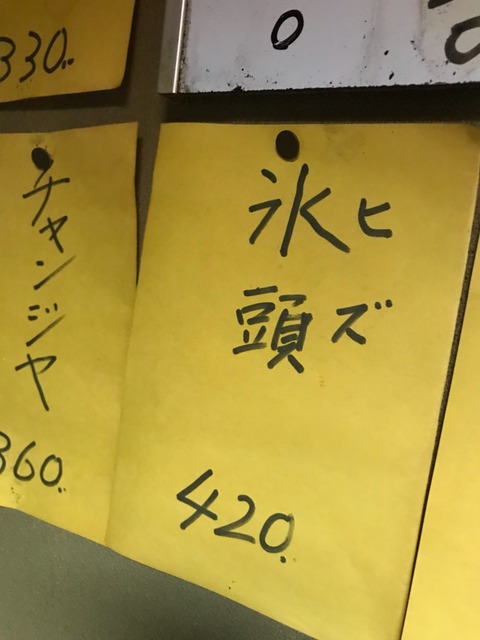 330.
0
氷頭
ヒズ
420.
チャンジャ
360.